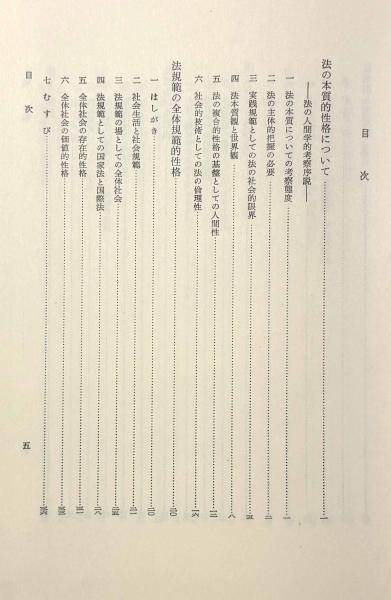 目次
法の本質的性格について……一
――法の人間学的考察序説――
一 法の本質についての考察態度……一
二 法の主体的把握の必要……二
三 実践規範としての法の社会的限界……五
四 法本質観と世界観……八
五 法の複合的性格の基盤としての人間性……
六 社会的技術としての法の倫理性……一六
法規範の全体規範的性格……二〇
一 はしがき……二〇
二 社会生活と社会規範……
三 法規範の場としての全体社会……二五
四 法規範としての国家法と国際法……二八
五 全体社会の存在的性格……
六 全体社会の価値的性格……
七 むすび……三六
目次
五